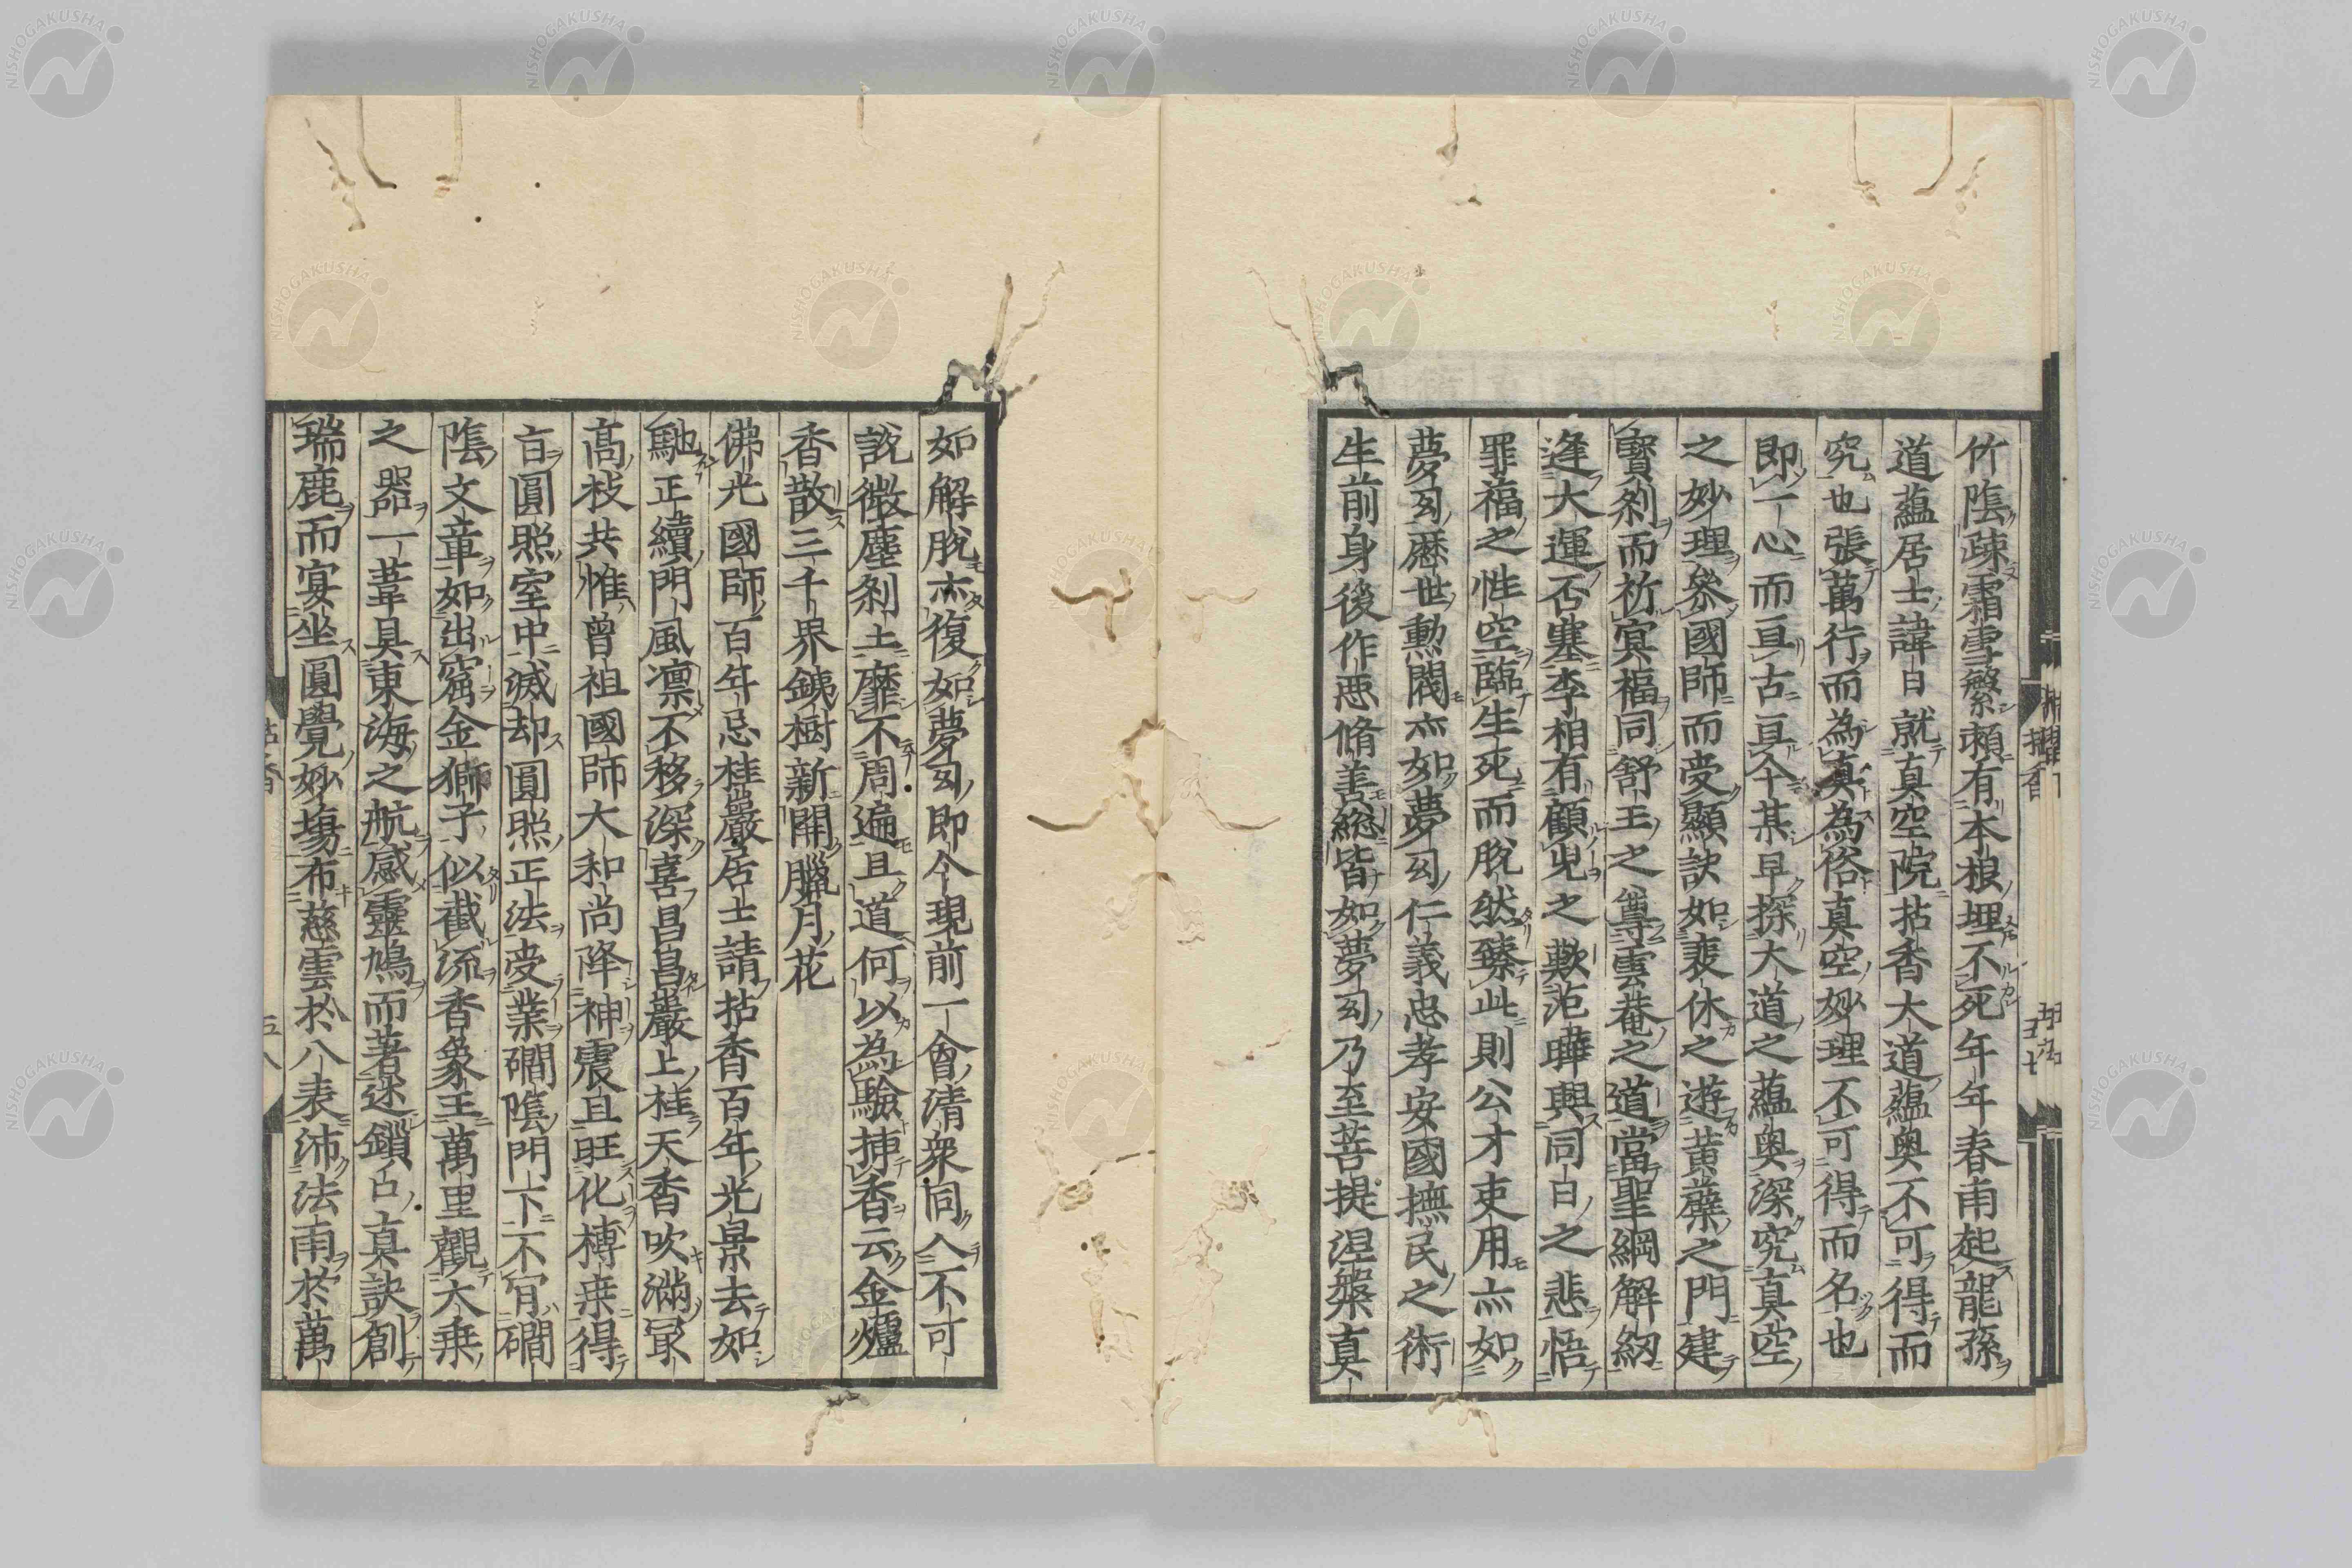 竹陰疎霜雪繁頼有本根埋不死年年春雨起龍孫
道蘊居士諱日就真空院拈香大道蘊奥不可得而
究也張萬行而為真為俗真空妙理不可得而名也
即一心而亘古亘今某早探大道之蘊奥深究真空
之妙理參國師而受顯訣如裴休之遊黄蘗之門建
寳刹而祈冥福同舒王之尊雲菴之道當聖綱解紐
逢大運否塞李相有顧兒之歎范曄興同白之悲悟
罪福之性空臨生死而脱然臻此則公才吏用亦如
夢幻歴世勲閥亦如夢幻仁義忠孝安國撫民之術
生前身後作悪脩善總皆如夢幻乃至菩提涅槃真
如解脱亦復如夢幻即今現前一會清衆同人不可
説微塵刹土靡不周遍且道何以為驗挿香云金爐
香散三千界鐵樹新開臘月花
佛光國師百年忌桂巖居士請拈香百年光景去如
馳正續門風凛不移深喜昌昌巖上桂天香吹満冣
髙枝共惟曽祖國師大和尚降神震旦旺化榑桒得
旨圓照室中滅却圓照正法受業磵陰門下不肎磵
陰文章如出窟金獅子似截流香象王萬里觀大乗
之器一葦具東海之航感靈鳩而著述鎖口真訣創
瑞鹿而宴坐圓覺妙塲布慈雲於八表沛法雨於萬
拈香
五八